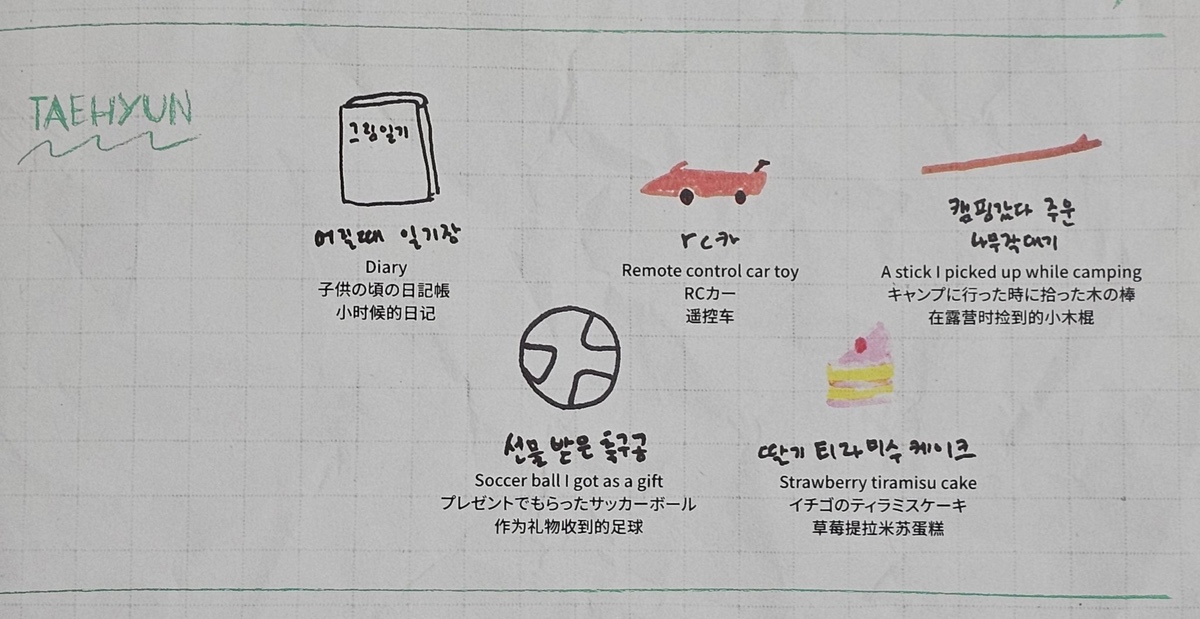 TAEHYUN
그림일기
어릴때 일기장
Diary
子供の頃の日記帳
小时候的日记
rc카
Remote control car toy
RCカー
遥控车
캠핑갔다 주운
나무작대기
A stick I picked up while camping
キャンプに行った時に拾った木の棒
在露营时捡到的小木棍
선물 받은 축구공
Soccer ball I got as a gift
プレゼントでもらったサッカーボール
作为礼物收到的足球
딸기 티라미수 케이크
Strawberry tiramisu cake
イチゴのティラミスケーキ
草莓提拉米苏蛋糕